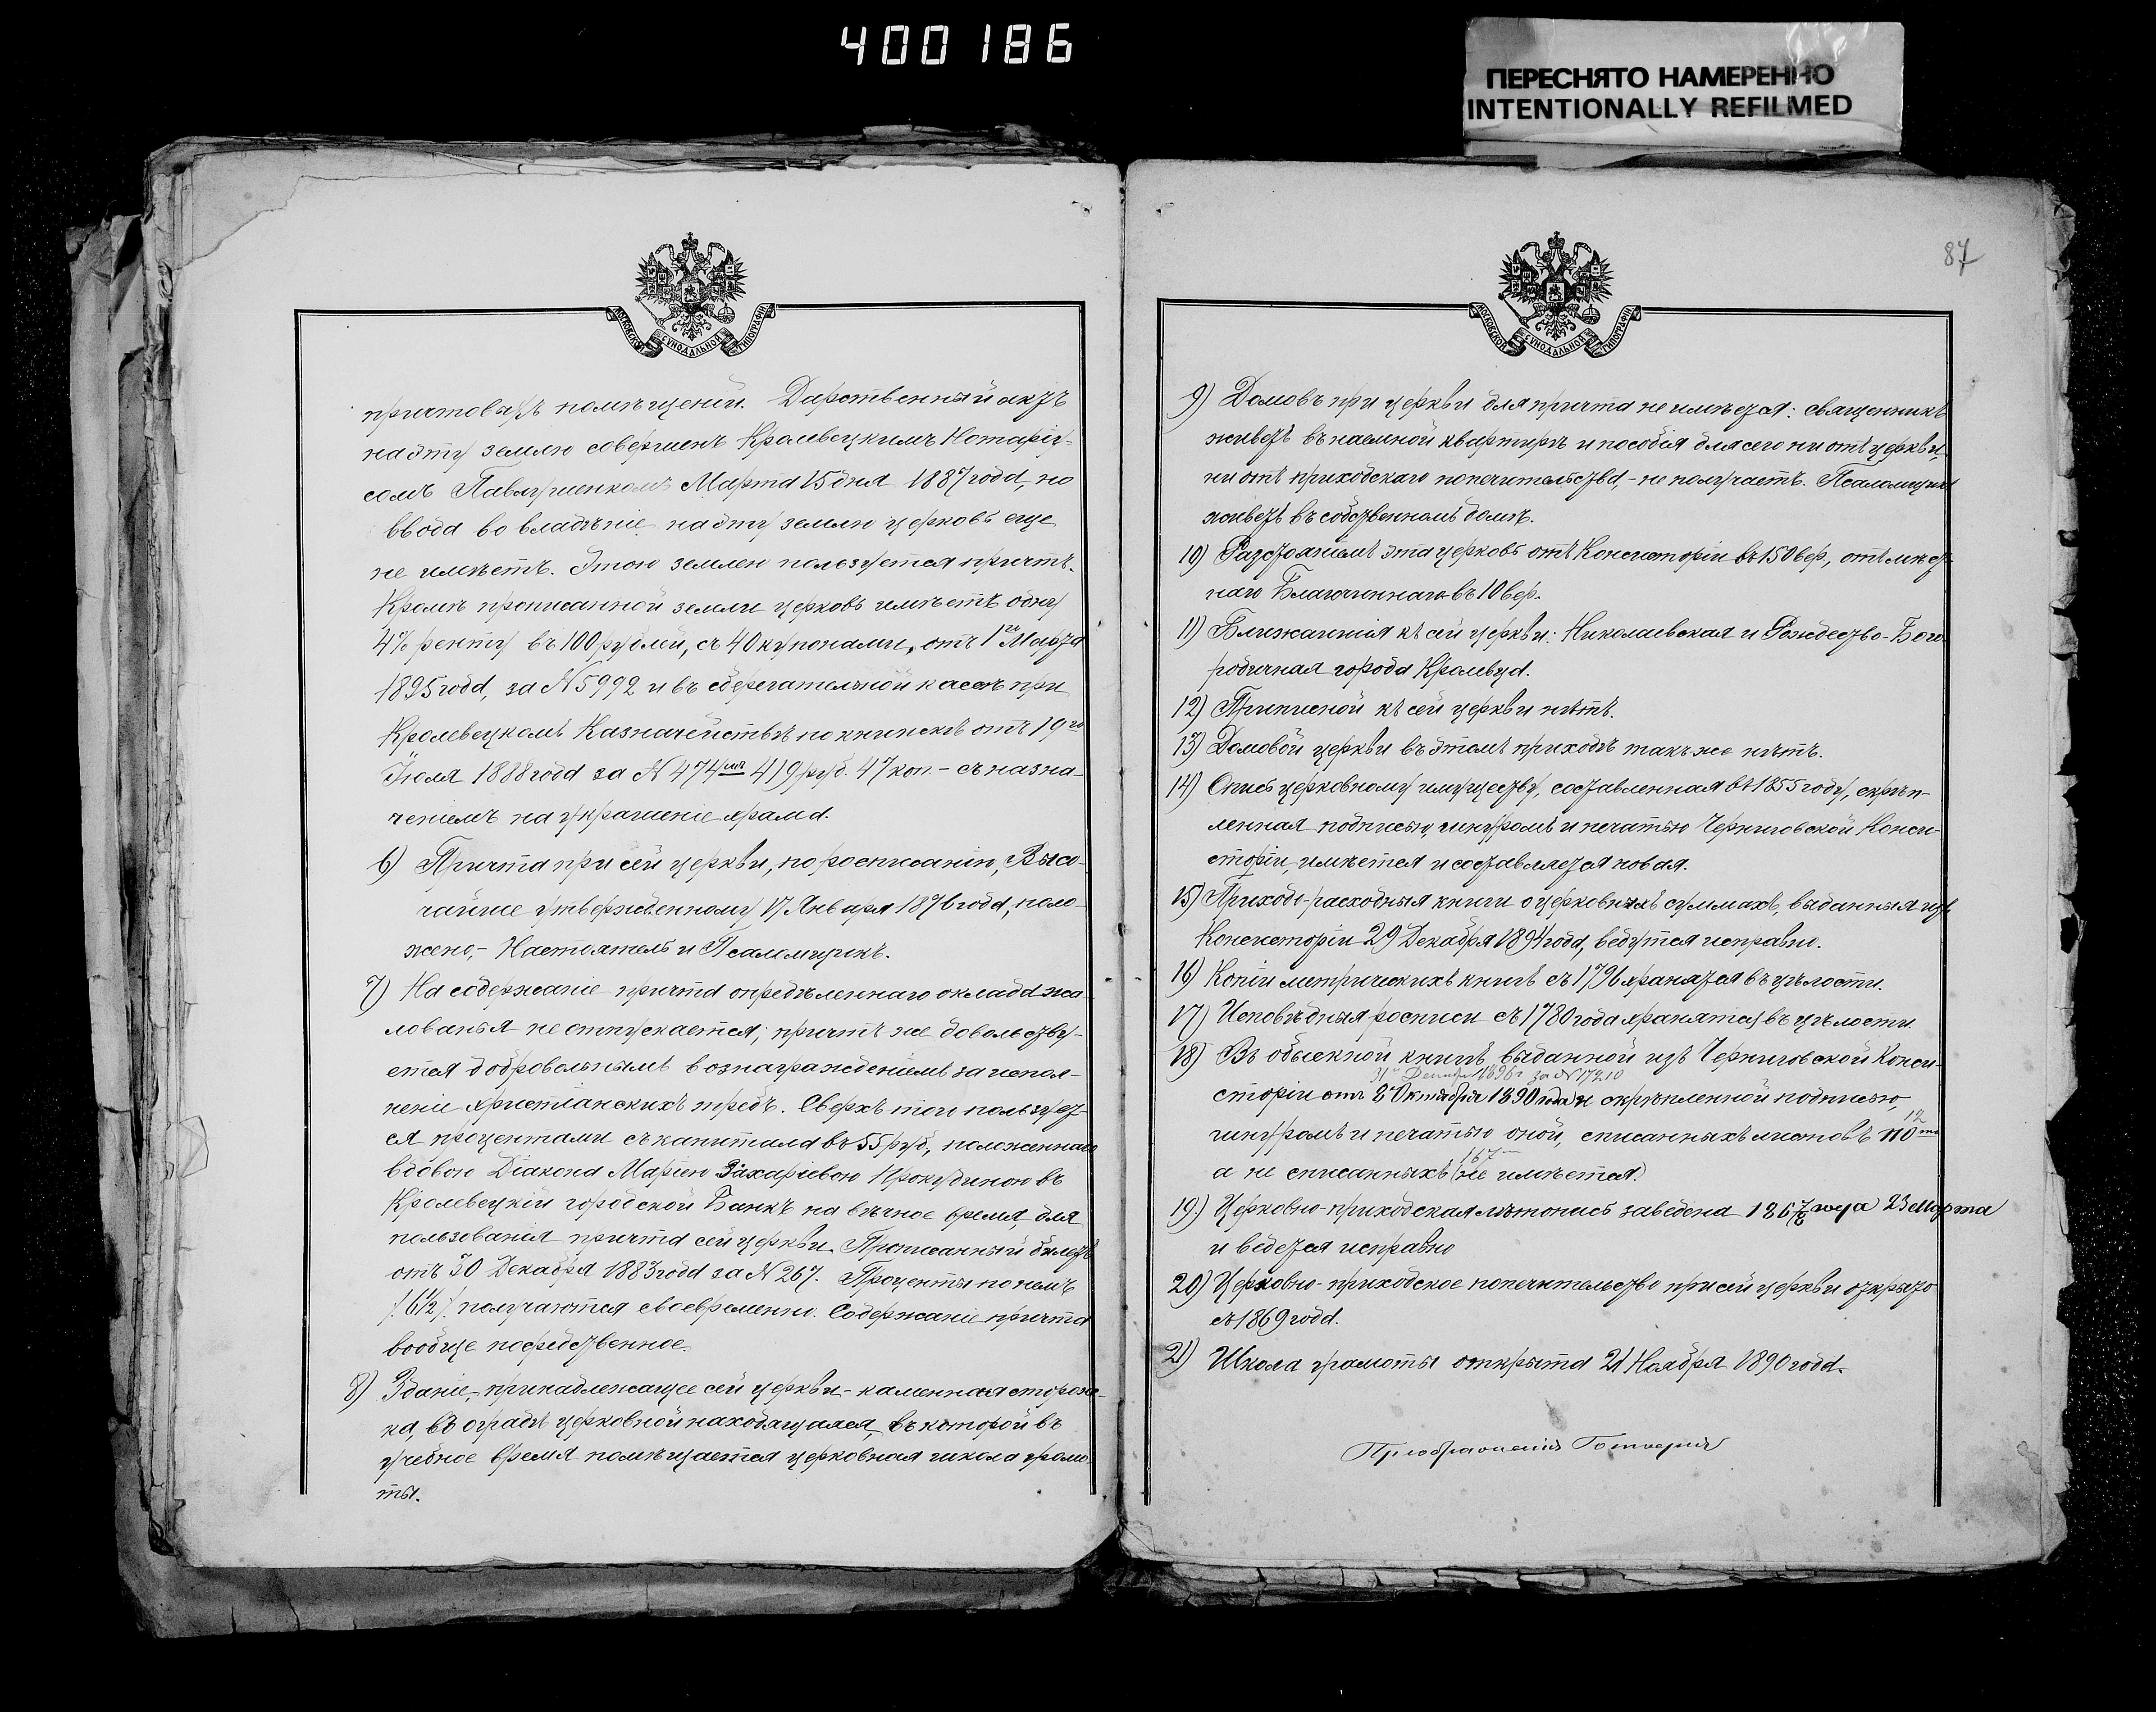 400186
ПЕРЕСНЯТО НАМЕРЕННО
INTENTIONALLY REFILMED
МОСКОВСКОЙ СѴНОДАЛЬНОЙ ТИПОГРАФІИ
причтовыхъ помѣщеній. Дарственный актъ
на эту землю совершенъ Кролевецкимъ Нотаріу-
сомъ Павлушенкомъ Марта 15 дня 1887 года, но
ввода во владѣніе на эту землю церковь еще
не имѣетъ. Этою землею пользуется причтъ.
Кромѣ прописанной земли церковь имѣетъ одну
4% ренту въ 100 рублей, съ 40 купонами, отъ 1го Марта
1895 года, за № 5992 и въ сберегательной кассѣ при
Кролевецкомъ Казначействѣ по книжкѣ отъ 19го
Іюля 1888 года за № 474мъ 419 руб. 47 коп. - съ назна-
ченіемъ на украшеніе храма.
6) Причта при сей церкви, по росписанію, Высо-
чайше утвержденному 17 Января 1876 года, поло-
жено,- Настоятель и Псаломщикъ.
7) На содержаніе причта опредѣленнаго оклада жа-
лованья не отпускается; причтъ же довольству-
ется добровольнымъ вознагражденіемъ за испол-
неніе христіанскихъ требъ. Сверхъ того пользует-
ся процентами съ капитала въ 55 руб., положеннаго
вдовою Діакона Маріею Захаріевою Прокудиною въ
Кролевецкій городской Банкъ на вѣчное время, для
пользованія причта сей церкви. Прописанный билетъ
отъ 30 Декабря 1883 года за № 267. Проценты по немъ
/6½/ получаются своевременно. Содержаніе причта
вообще посредственное.
8) Зданіе, принадлежащее сей церкви - каменная сторож-
ка, въ оградѣ церковной находящаяся, въ которой въ
учебное время помѣщается церковная школа грамо-
ты.
87
МОСКОВСКОЙ СѴНОДАЛЬНОЙ ТИПОГРАФІИ
9) Домовъ при церкви для причта не имѣется: священникъ
живетъ въ наемной квартирѣ и пособія для сего ни отъ церкви,
ни отъ приходскаго попечительства,- не получаетъ. Псаломщикъ
живетъ въ собственномъ домѣ.
10) Разстояніемъ эта церковь отъ Консисторіи въ 150 вер., отъ мѣст-
наго Благочиннаго въ 10 вер.
11) Ближайшія къ сей церкви: Николаевская и Рождество-Бого-
родичная города Кролевца.
12) Приписной къ сей церкви нѣтъ.
13) Домовой церкви въ этомъ приходѣ такъ же нѣтъ.
14) Опись церковному имуществу, составленная въ 1855 году, скрѣп-
ленная подписью, шнуромъ и печатью Черниговской Конси-
сторіи, имѣется и составляется новая.
15) Приходо-расходныя книги о церковныхъ суммахъ, выданныя изъ
Консисторіи 29 Декабря 1894 года, ведутся исправно.
16) Копіи метрическихъ книгъ съ 1796 хранятся въ цѣлости.
17) Исповѣдныя росписи съ 1780 года хранятся въ цѣлости
18) Въ обыскной книгѣ, выданной изъ Черниговской Конси-
Декабря 1896 г. за № 17210
сторіи отъ 8 Октября 1890 года и скрѣпленной подписью,
шнуромъ и печатью оной, списанныхъ листовъ 110
167
а не списанныхъ (не имѣется.)
19) Церковно-приходская лѣтопись заведена 1867/8 года 23 Марта
и ведется исправно
20) Церковно-приходское попечительство при сей церкви открыто
съ 1869 года.
21) Школа грамоты открыта 21 Ноября 1890 года.